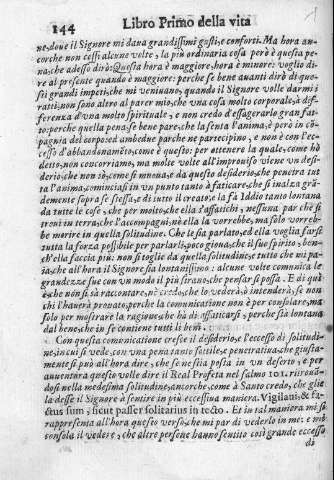 144 Libro Primo della vita
ne, doue il Signore mi daua grandissimi gusti, e conforti. Ma hora an-
corche non cessi alcune volte, la più ordinaria cosa però è questa pe-
na, che adesso dirò: Questa hora è maggiore, hora è minore: voglio di-
re al presente quando è maggiore: perche se bene auanti dirò di que-
sti grandi impeti, che mi veniuano, quando il Signore volle darmi i
ratti, non sono altro al parer mio, che vna cosa molto corporale, à dif-
ferenza d'vna molto spirituale, e non credo d'essagerarlo gran fat-
to: perche quella pena, se bene pare, che la senta l'anima, è però in cō-
pagnia del corpo: ed ambedue parche ne partecipino, e non è con l'ec-
cesso d'abbandonamēto, come è questo: per ottenere la quale, come hò
detto, non concorriamo, ma molte volte all'improuiso viene vn desi-
derio, che non sò, come si muoua, e da questo desiderio, che penetra tut
ta l'anima, comincia si in vn punto tanto à faticare, che si inalza grā-
demente sopra se stessa, e di tutto il creato, e la fà Iddio tanto lontana
da tutte le cose, che per molto, che ella s'affatichi, nessuna par che si
troui in terra, che l'accompagni, nè ella la vorrebbe, ma solo vorreb-
be morire in quella solitudine. Che le sia parlato, ed ella voglia farsi
tutta la forza possibile per parlar li, poco gioua, che il suo spirito, ben-
ch'ella faccia più: non si toglie da quella solitudine, e tutto che mi pa-
ia, che all'hora il Signore sia lontanissimo: alcune volte comunica le
grandezze sue con vn modo il più strano, che pensar si possa. E di qui
è, che non si sà raccontare, nè credo, che lo vederà, ò intenderà, se non
chi l'hauerà prouato, perche la communicatione non è per consolare, ma
solo per mostrare la ragione, che hà di affaticarsi, perche stà lontana
dal bene, che in se contiene tutti li beni.
Con questa comunicatione cresce il desiderio, e l'eccesso di solitudi-
ne, in cui si vede, con vna pena tanto sottile, e penetratiua, che giusta-
mente si può all'hora dire, che se ne stia posta in vn deserto, e per
auuentura questo volle dire il Real Profeta nel salmo 101. ritrouā-
dosi nella medesima solitudine, ancorche, come à Santo credo, che glie
la desse il Signore à sentire in più eccessiua maniera. Vigilaui, & fa-
ctus sum, sicut passer solitarius in tecto. Et in tal maniera mi si
rappresenta all'hora questo verso, che mi par di vederlo in me: e mi
consola il vedere, che altre persone hanno sentito così grande eccesso
di